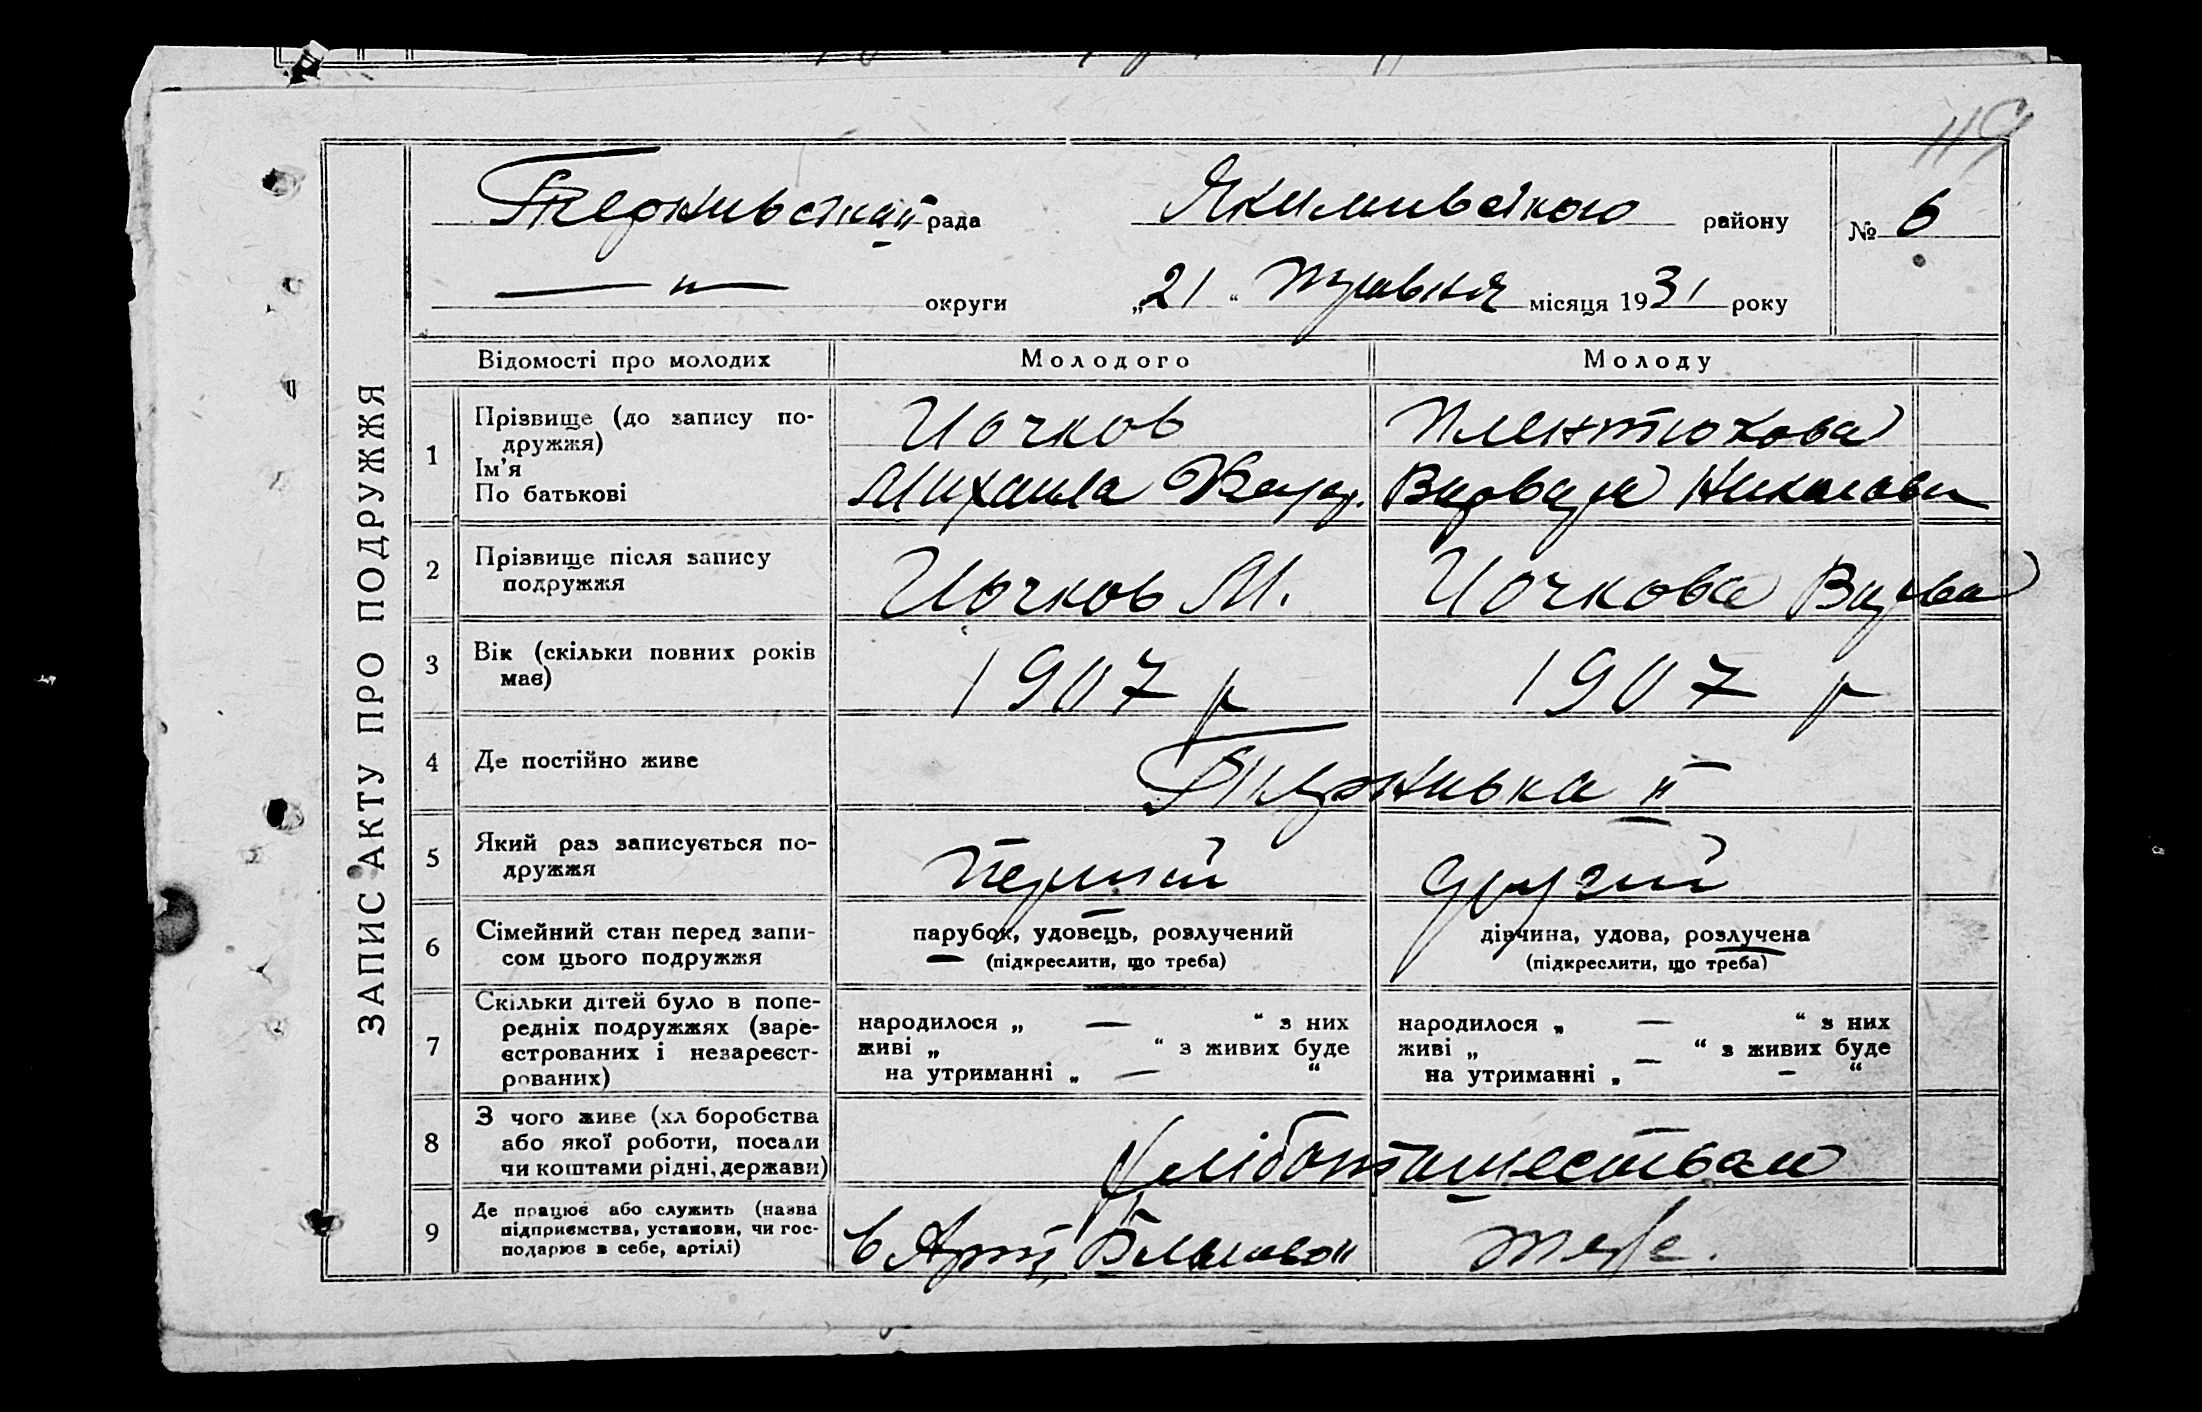 119
Тернивській рада Якимивського району № 6
— „ — округи „21“ травня місяця 1931 року
ЗАПИС АКТУ ПРО ПОДРУЖЖЯ
Відомості про молодих Молодого Молоду
1 Прізвище (до запису подружжя) Ночков Плентюхова
Ім’я
По батькові Михаила Варвара Николаевн
2 Прізвище після запису подружжя Ночков М. Ночкова Варва
3 Вік (скільки повних років має) 1907 р 1907 р
4 Де постійно живе Тернивка II
5 Який раз записується подружжя Перший другий
6 Сімейний стан перед записом цього подружжя парубок, удовець, розлучений дівчина, удова, розлучена
(підкреслити, що треба) (підкреслити, що треба)
7 Скільки дітей було в попередніх подружжях (зареєстрованих і незареєстрованих)
народилося „ — “ з них народилося „ — “ з них
живі „ “ з живих буде живі „ — “ з живих буде
на утриманні „ — “ на утриманні „ — “
8 З чого живе (хл боробства або якої роботи, посади чи коштами рідні, держави)
9 Де працює або служить (назва підприємства, установи, чи господарює в себе, артілі) в Арт,